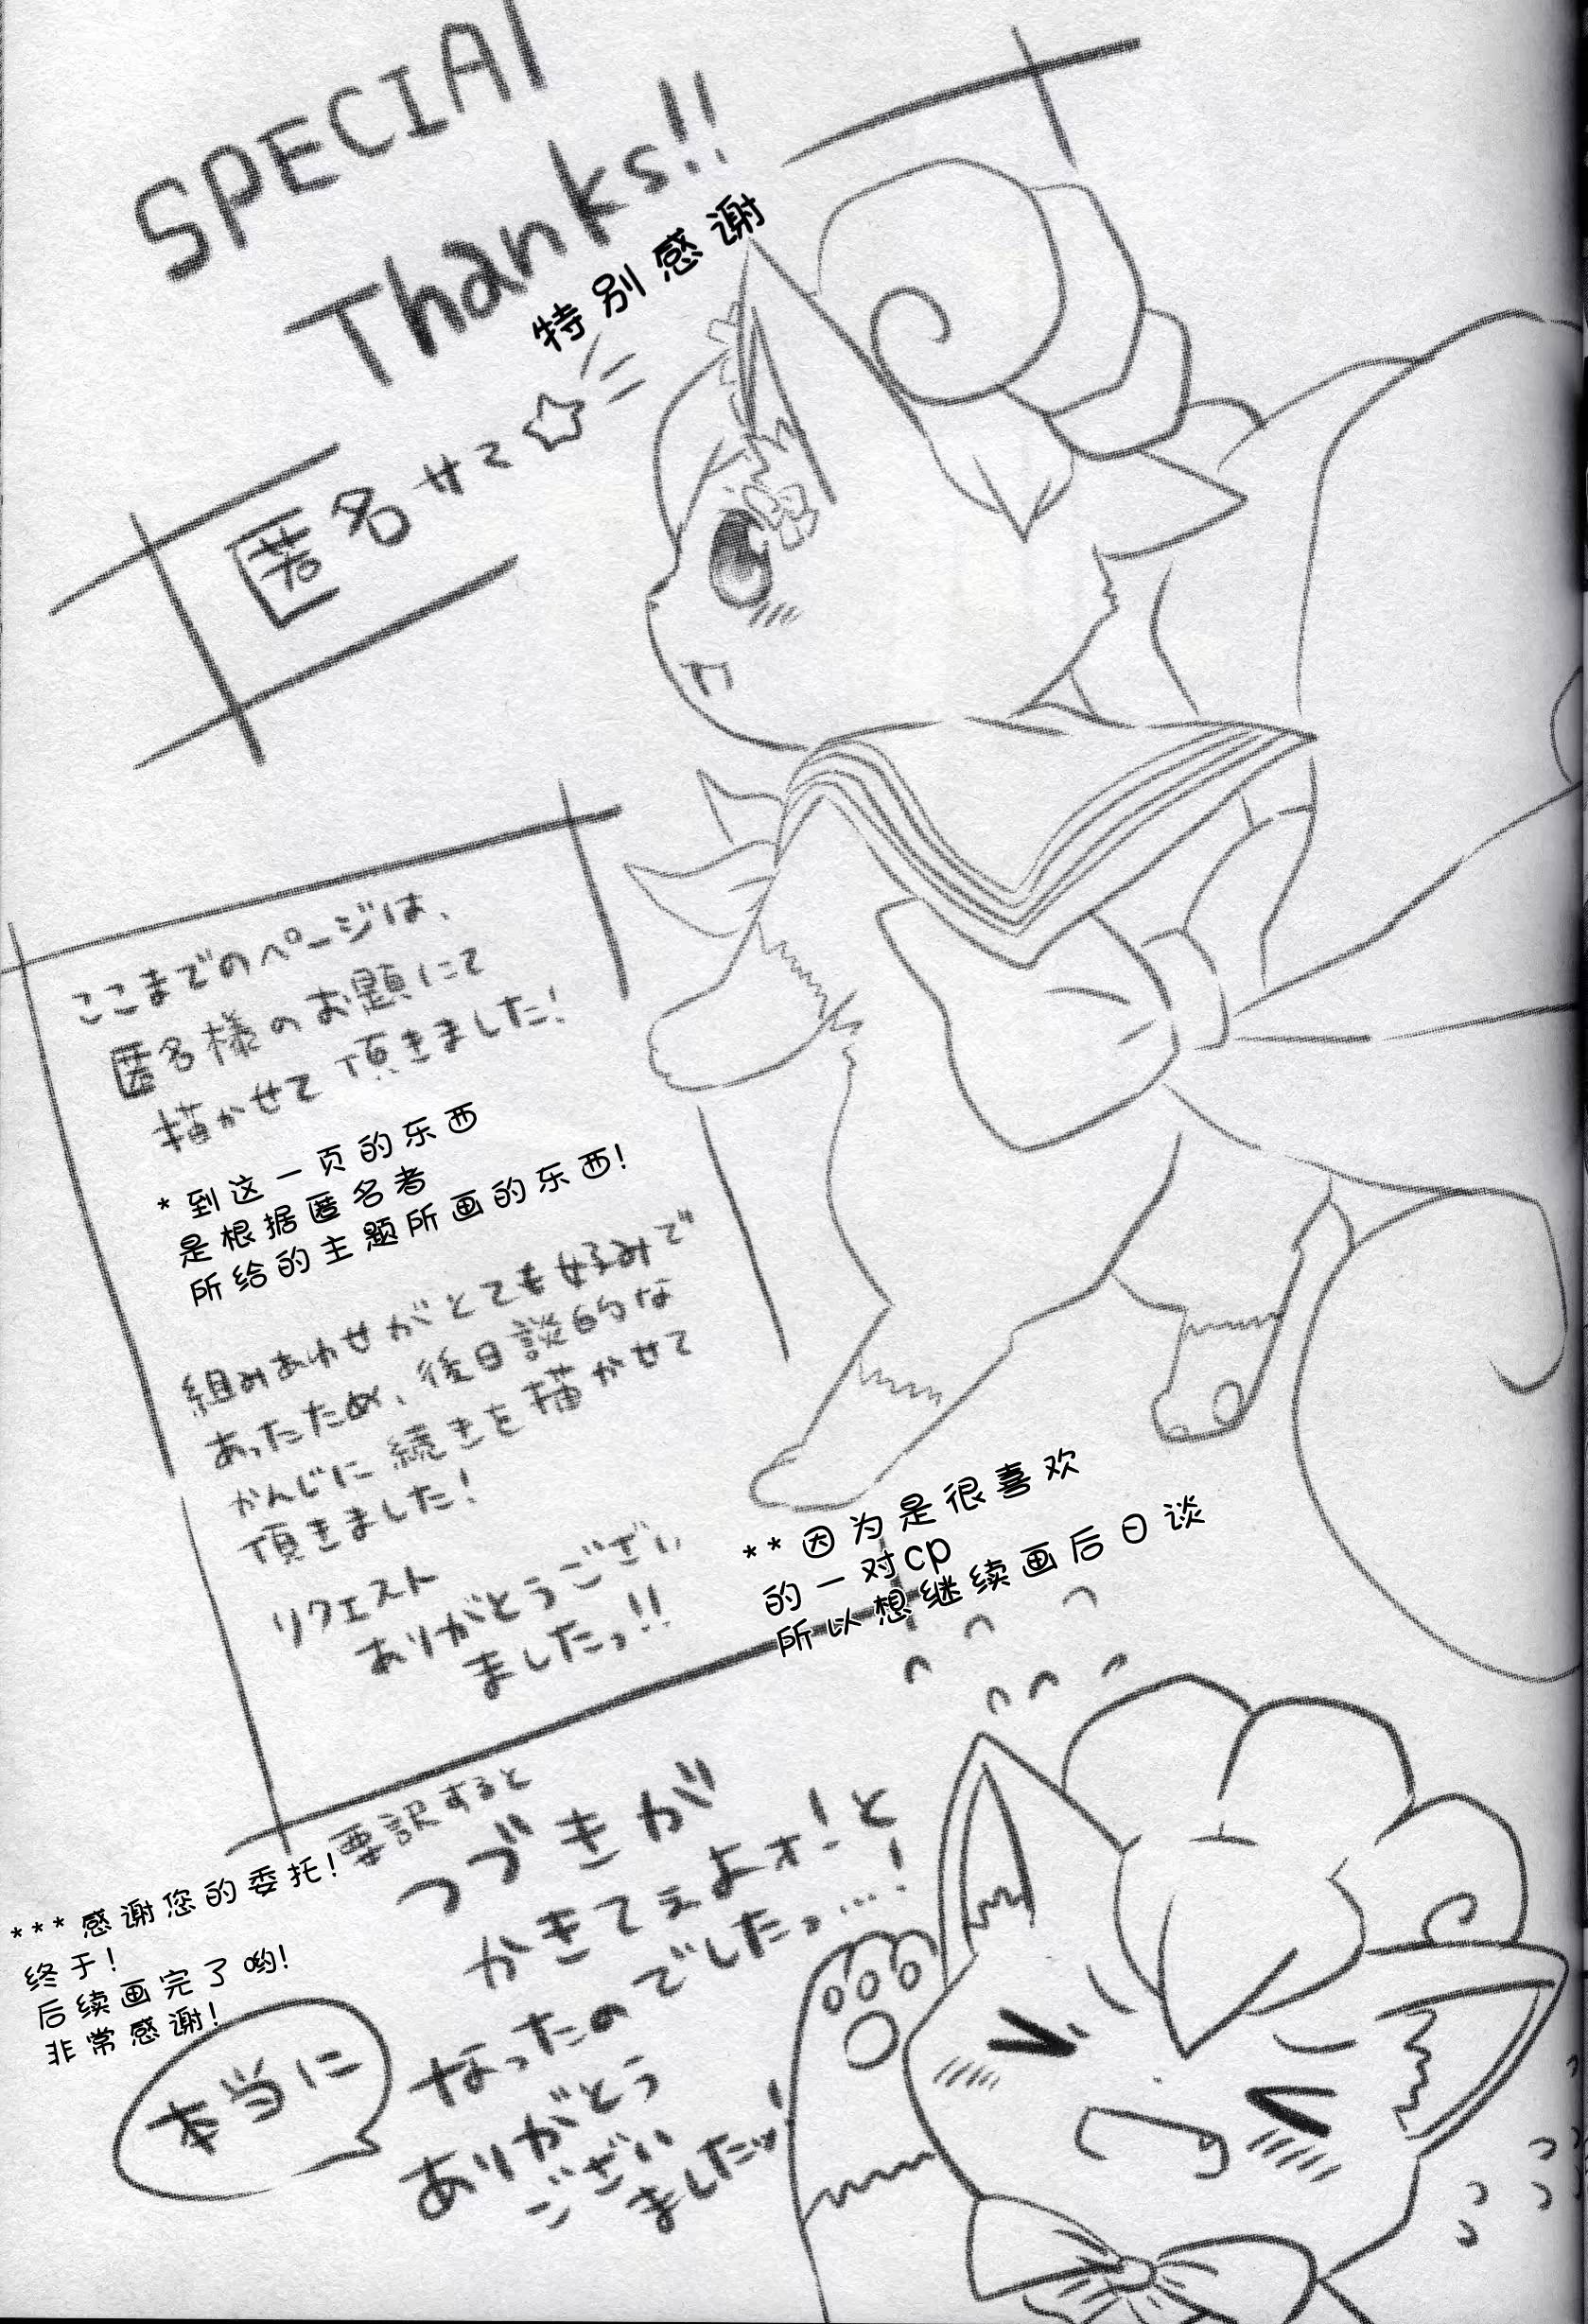 SPECIAL
Thanks!!
特别感谢
匿名サマ☆
ここまでのページは、
匿名様のお題にて
描かせて頂きました!
*到这一页的东西
是根据匿名者
所给的主题所画的东西!
組みあわせがとても好みで
あったため、後日談的な
かんじに続きを描かせて
頂きました!
リクエスト
ありがとうござい
ましたっ!!
**因为是很喜欢
的一对cp
所以想继续画后日谈
要訳すると
つづきが
かきてぇよォー!と
なったのでしたっ…!
***感谢您的委托!
终于!
后续画完了哟!
非常感谢!
本当に
ありがとう
ござい
ましたッ!